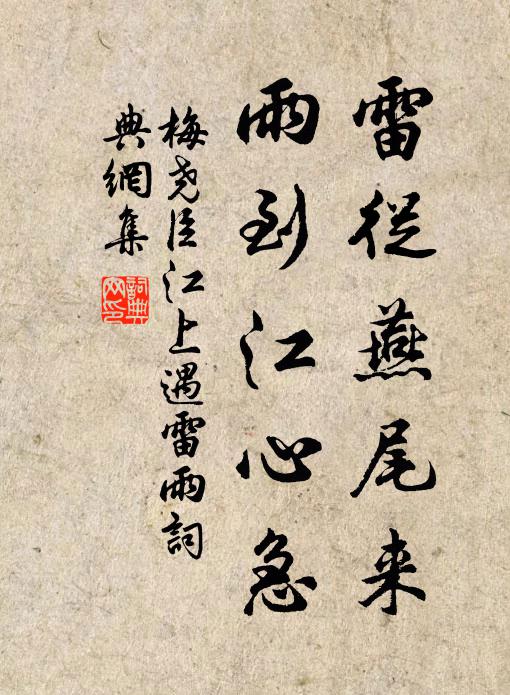 雷從燕尾来
雨到江心急
梅堯臣江上遇雷雨詞
典網集
詞典网印